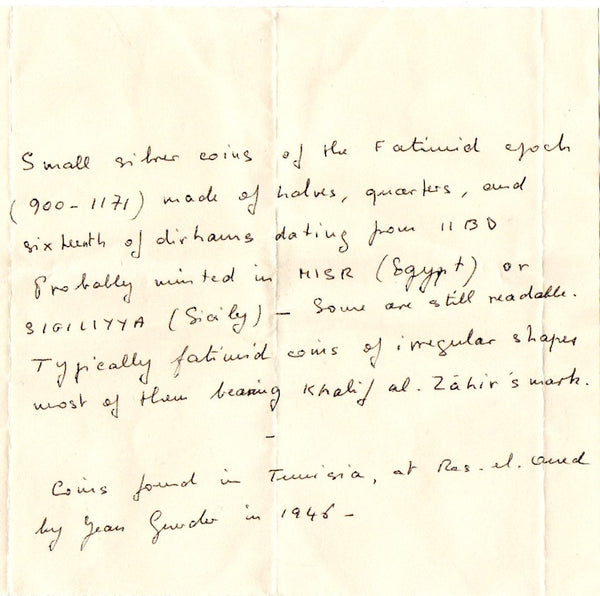 Small silver coins of the Fatimid epoch
(900-1171) made of halves, quarters, and
sixteenth of dirhams dating from 1130
Probably minted in MISR (Egypt) or
SIGILIYYA (Sicily) - Some are still readable.
Typically fatimid coins of irregular shapes
most of them bearing Khalif al. Zāhir's mark.
-
Coins found in Tunisia, at Ras. el. Oued
by Jean in 194 -